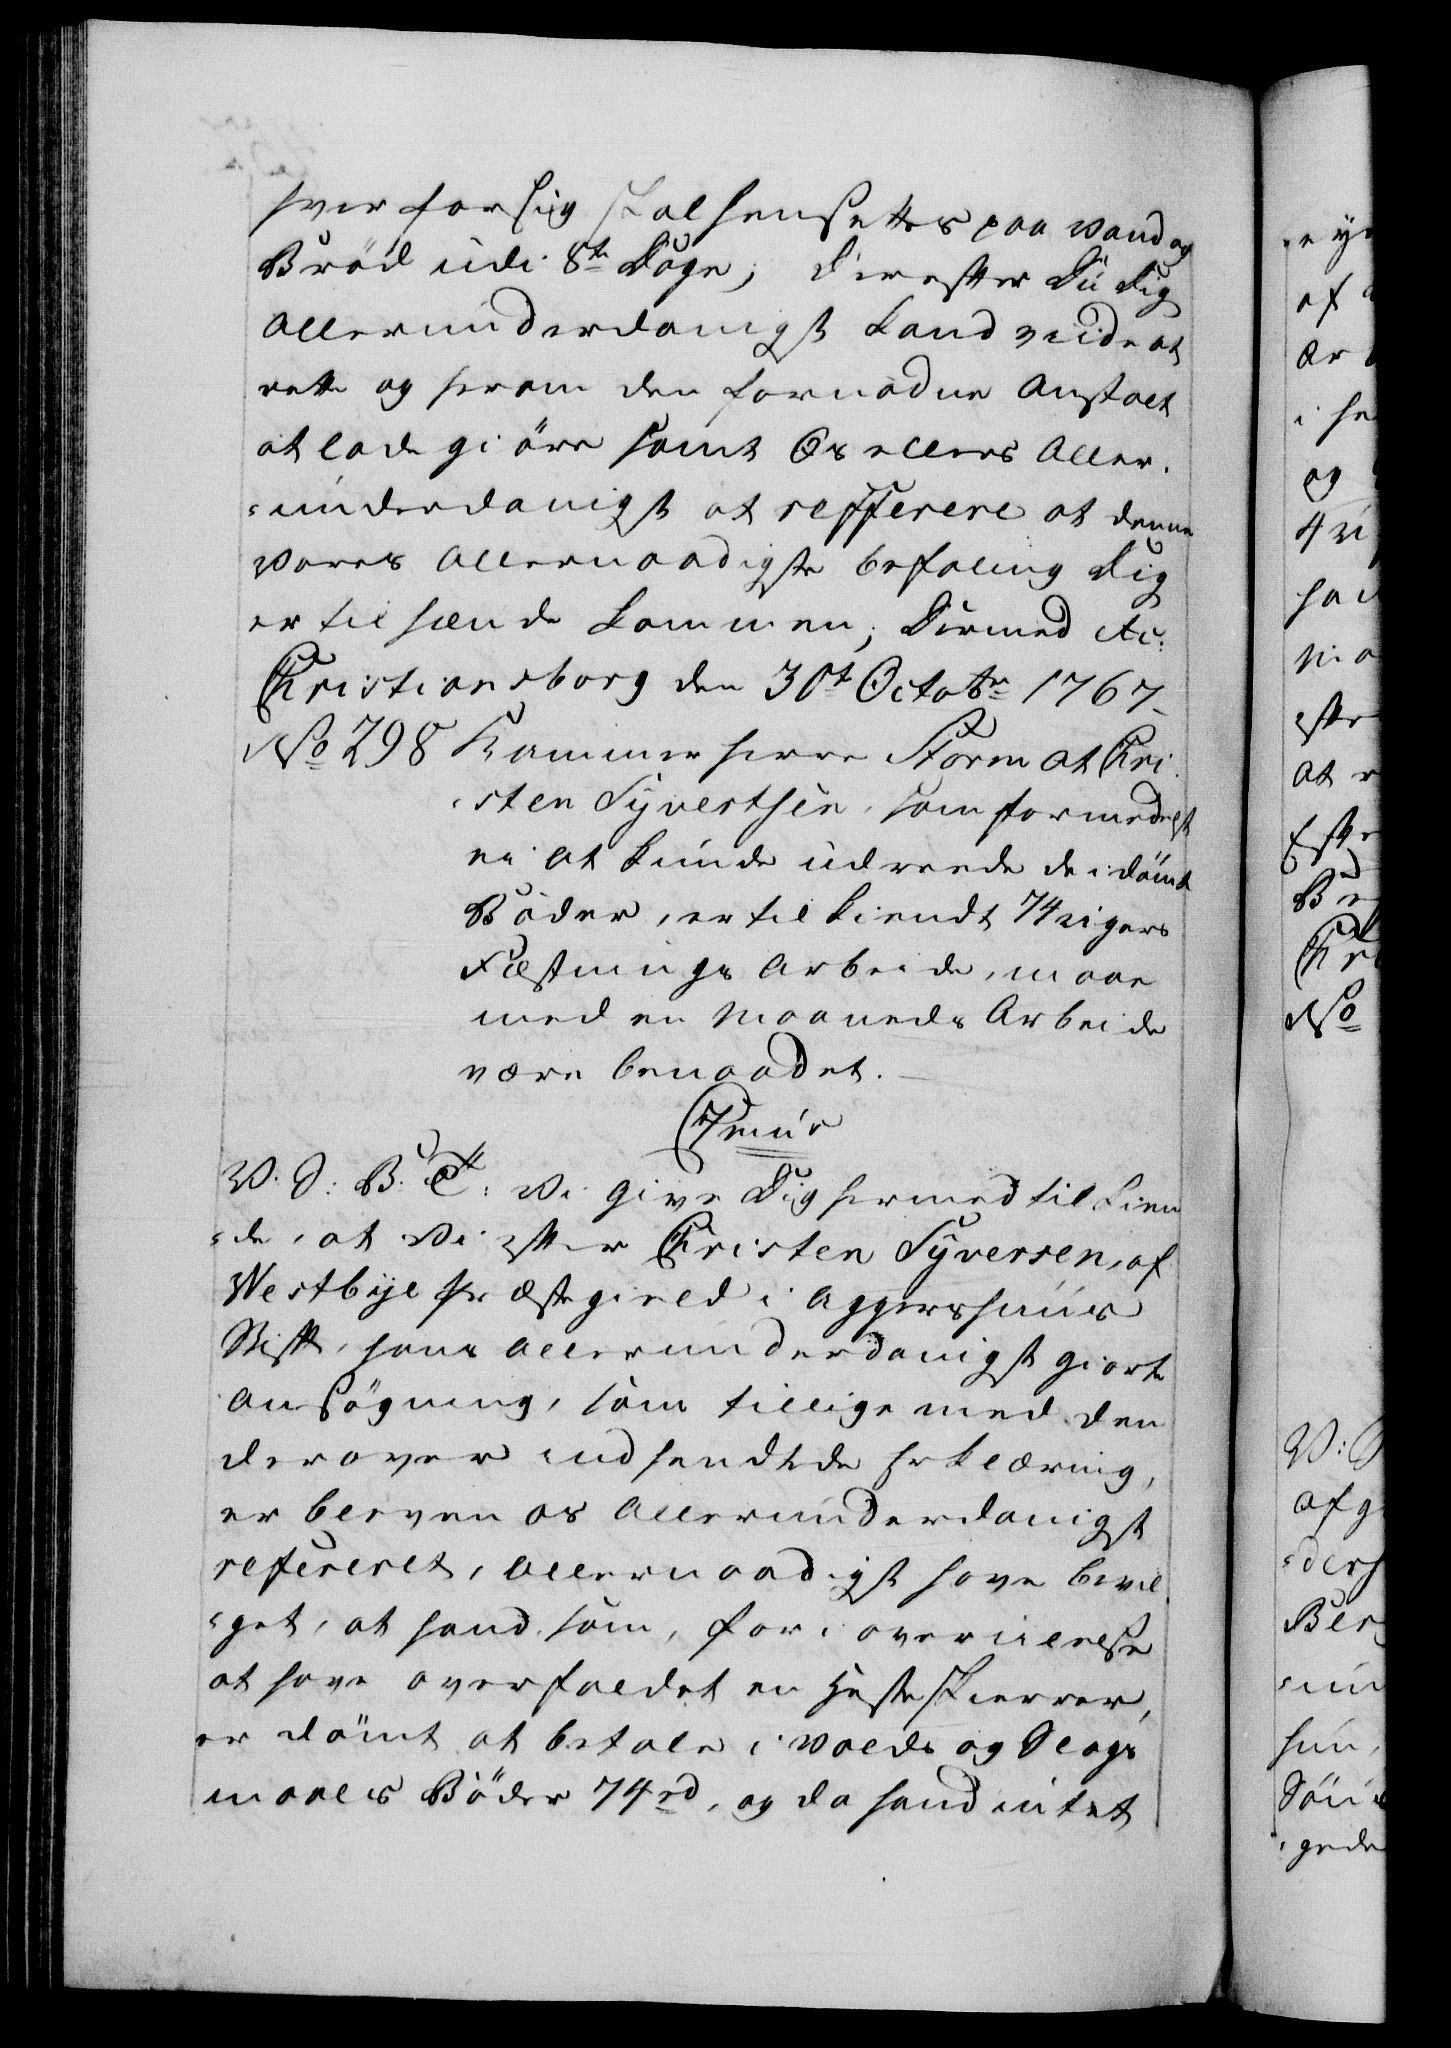 hver for sig skal hensettes paa vand og
Brød udi 8te Dage; Derefter Du dig
allerunderdanigst kand viide at
rette og herom den fornødne Anstalt
at lade giøre samt Os ellers Aller-
-underdanigst at refferere at denne
vores allernaadigste befaling dig
er til hænde kommen; Dermed etc:
Christiansborg den 30t Octobr 1767.
No 298 Kammerherre Storm at Chri-
-sten Syvertsen, som formedelst
ei at kunde udreede de idømte
Bøder, er tilkiendt 74 ugers
Fæstnings Arbeide, maae
med en Maaneds Arbeide
være benaadet.
V: S: B: T: Vi give Dig hermed tilkien
-de, at Vi efter Christen Syversen, af
Westbye Præstegield i Aggershuus
Stift, hans allerunderdanigst giorte
ansøgning, som tillige med den
derover indsendte Erklæring,
er bleven os allerunderdanigst
refereret, allernaadigst have bevil-
-get, at hand som, for i overiilelse
at have overfaldet en Heste skierer,
er dømt at betale i Volds og Slags
maals Bøder 74 rd, og da hand intet